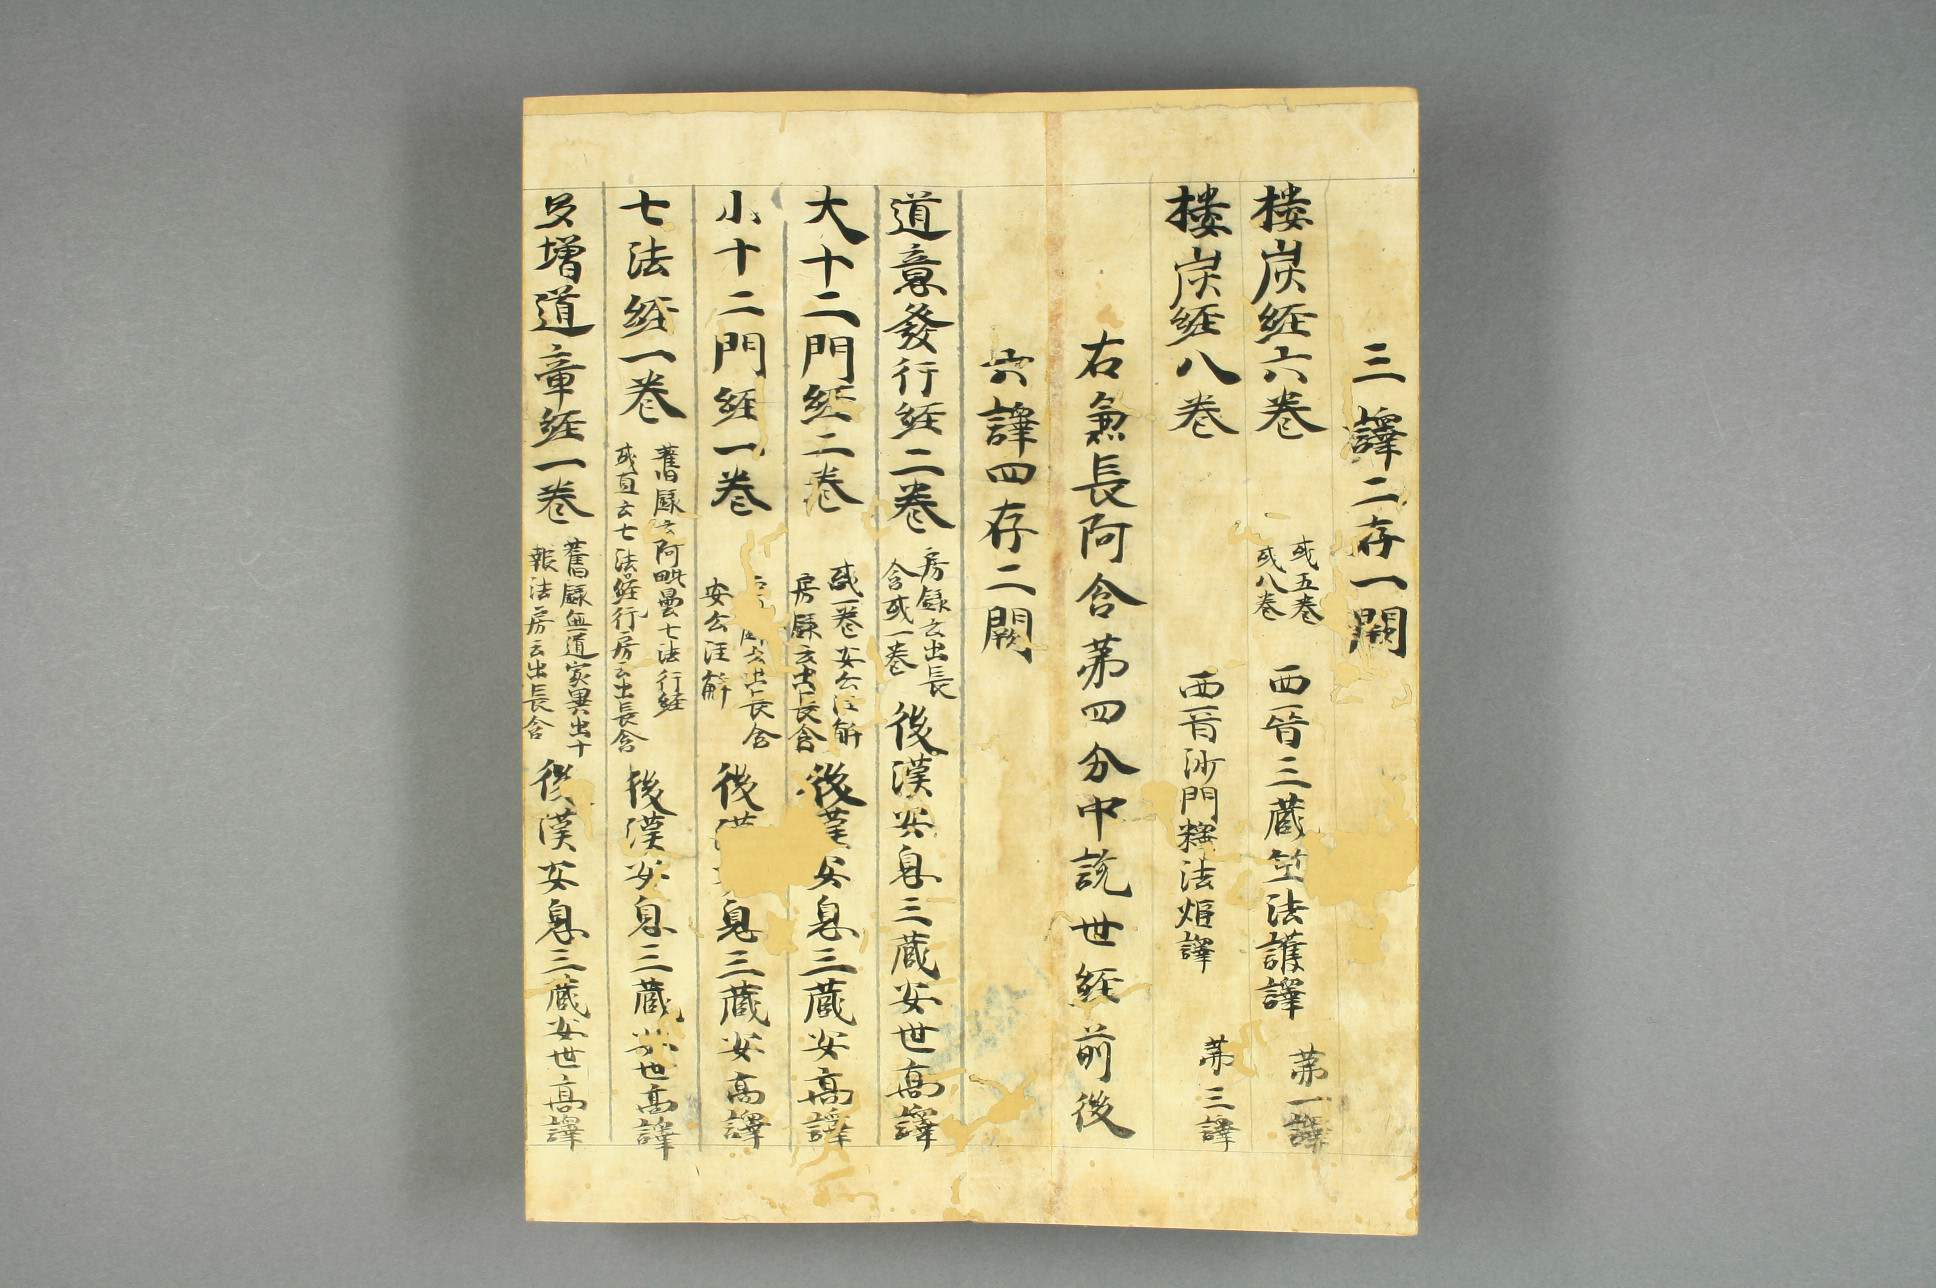 三譯二存一闕
樓炭経六卷 或五卷 或八卷 西晉三藏竺法護譯 第一譯
樓炭経八卷 西晉沙門釋法炬譯 第三譯
右兼長阿含第四分中説世経前後
六譯四存二闕
道意發行経二卷 房録云出長 含或一卷 後漢安息三藏安世高譯
大十二門経二卷 或一卷安公注解 房録云出長含 後漢安息三藏安高譯
小十二門経一卷 録云出長含 安公注解 後漢 息三藏安高譯
七法経一卷 舊録云阿毗曇七法行経 或直云七法経行房云出長含 後漢安息三藏安世高譯
多增道章経一卷 舊録無道家異出十 報法房云出長含 後漢安息三藏安世高譯